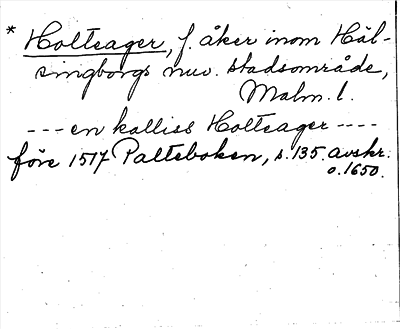 * Holtsager, f. åker inom Häl-
singborgs nuv. stadsområde,
Malm. l.
--- en kalliss Holtsager ----
före 1517 Palteboken, s. 135. avskr.
o. 1650.